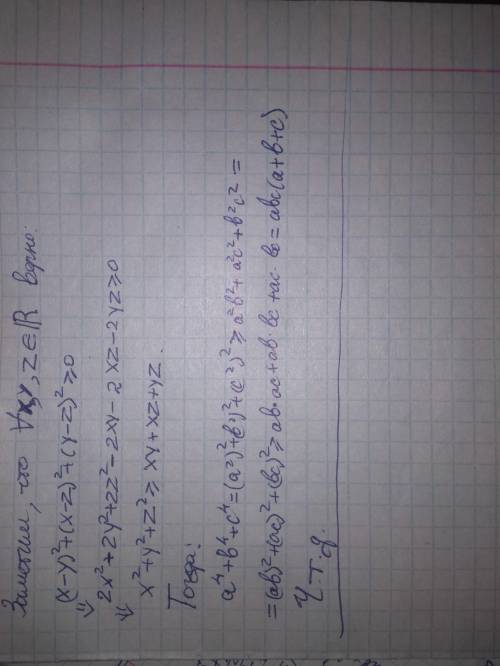 Заметим, что ∀x,y,z∈ℝ верно:
(x-y)²+(x-z)²+(y-z)²≥0
⇓
2x²+2y²+2z²-2xy-2xz-2yz≥0
⇓
x²+y²+z²≥xy+xz+yz.
Тогда:
a⁴+b⁴+c⁴=(a²)²+(b²)²+(c²)²≥a²b²+a²c²+b²c²=
=(ab)²+(ac)²+(bc)²≥ab·ac+ab·bc+ac·bc=abc(a+b+c)
Ч.т.д.